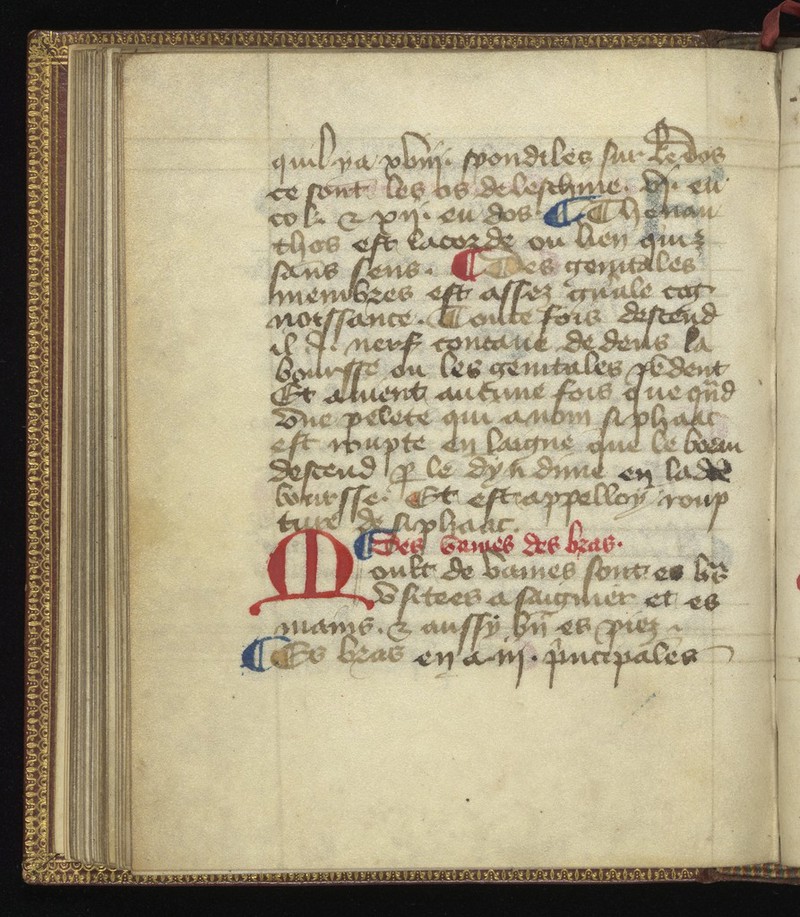 quil ya xviij. spondiles sur le dos
ce sont les os de leschine. vj. eu
col. & xij. eu dos ¶ Thenan
thos est lacorde ou lien qui est
sans sens. ¶ Des genitales
membres est assez gnale cog
noissance. Toute fois descend
il . nerf concaue dedens la
boursse ou les genitales pendent
Et auient aucune fois que qnd
vne pelete qui a nom siphaac
est roupte en laigne que le boeau
descend p le dyndime en lad
boursse. Et est appelloy roup
ture de siphaac.
¶ Des vaines des bras.
Moult de vaines sont es brs
vsitees a saignier et es
mains. & aussy bn es piez.
¶ Es bras en a iij. pncipales